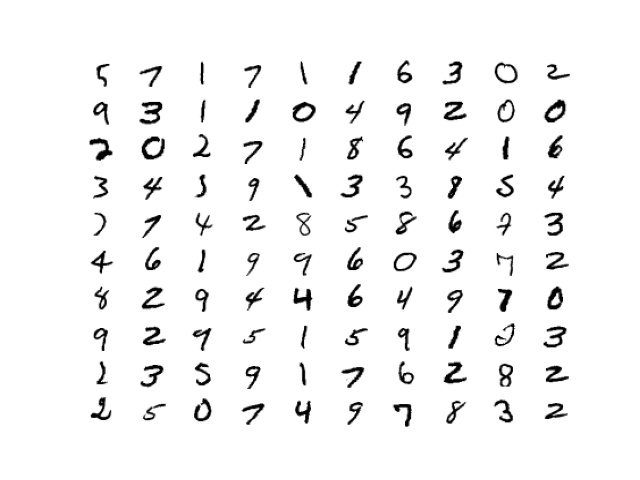 5 7 1 7 1 1 6 3 0 2
9 3 1 1 0 4 9 2 0 0
2 0 2 7 1 8 6 4 1 6
3 4 5 9 1 3 3 8 5 4
7 7 4 2 8 5 8 6 7 3
4 6 1 9 9 6 0 3 7 2
8 2 9 4 4 6 4 9 7 0
9 2 9 5 1 5 9 1 2 3
2 3 5 9 1 7 6 2 8 2
2 5 0 7 4 9 7 8 3 2